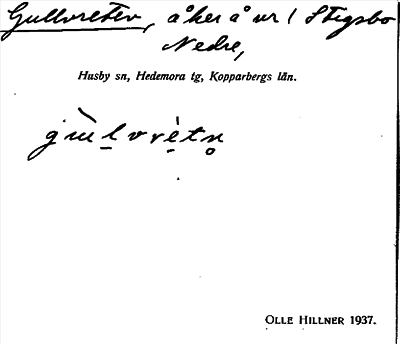 Gullvreten, åker å nr 1 Stigsbo
Nedre,
Husby sn, Hedemora tg, Kopparbergs län.
OLLE HILLNER 1937.